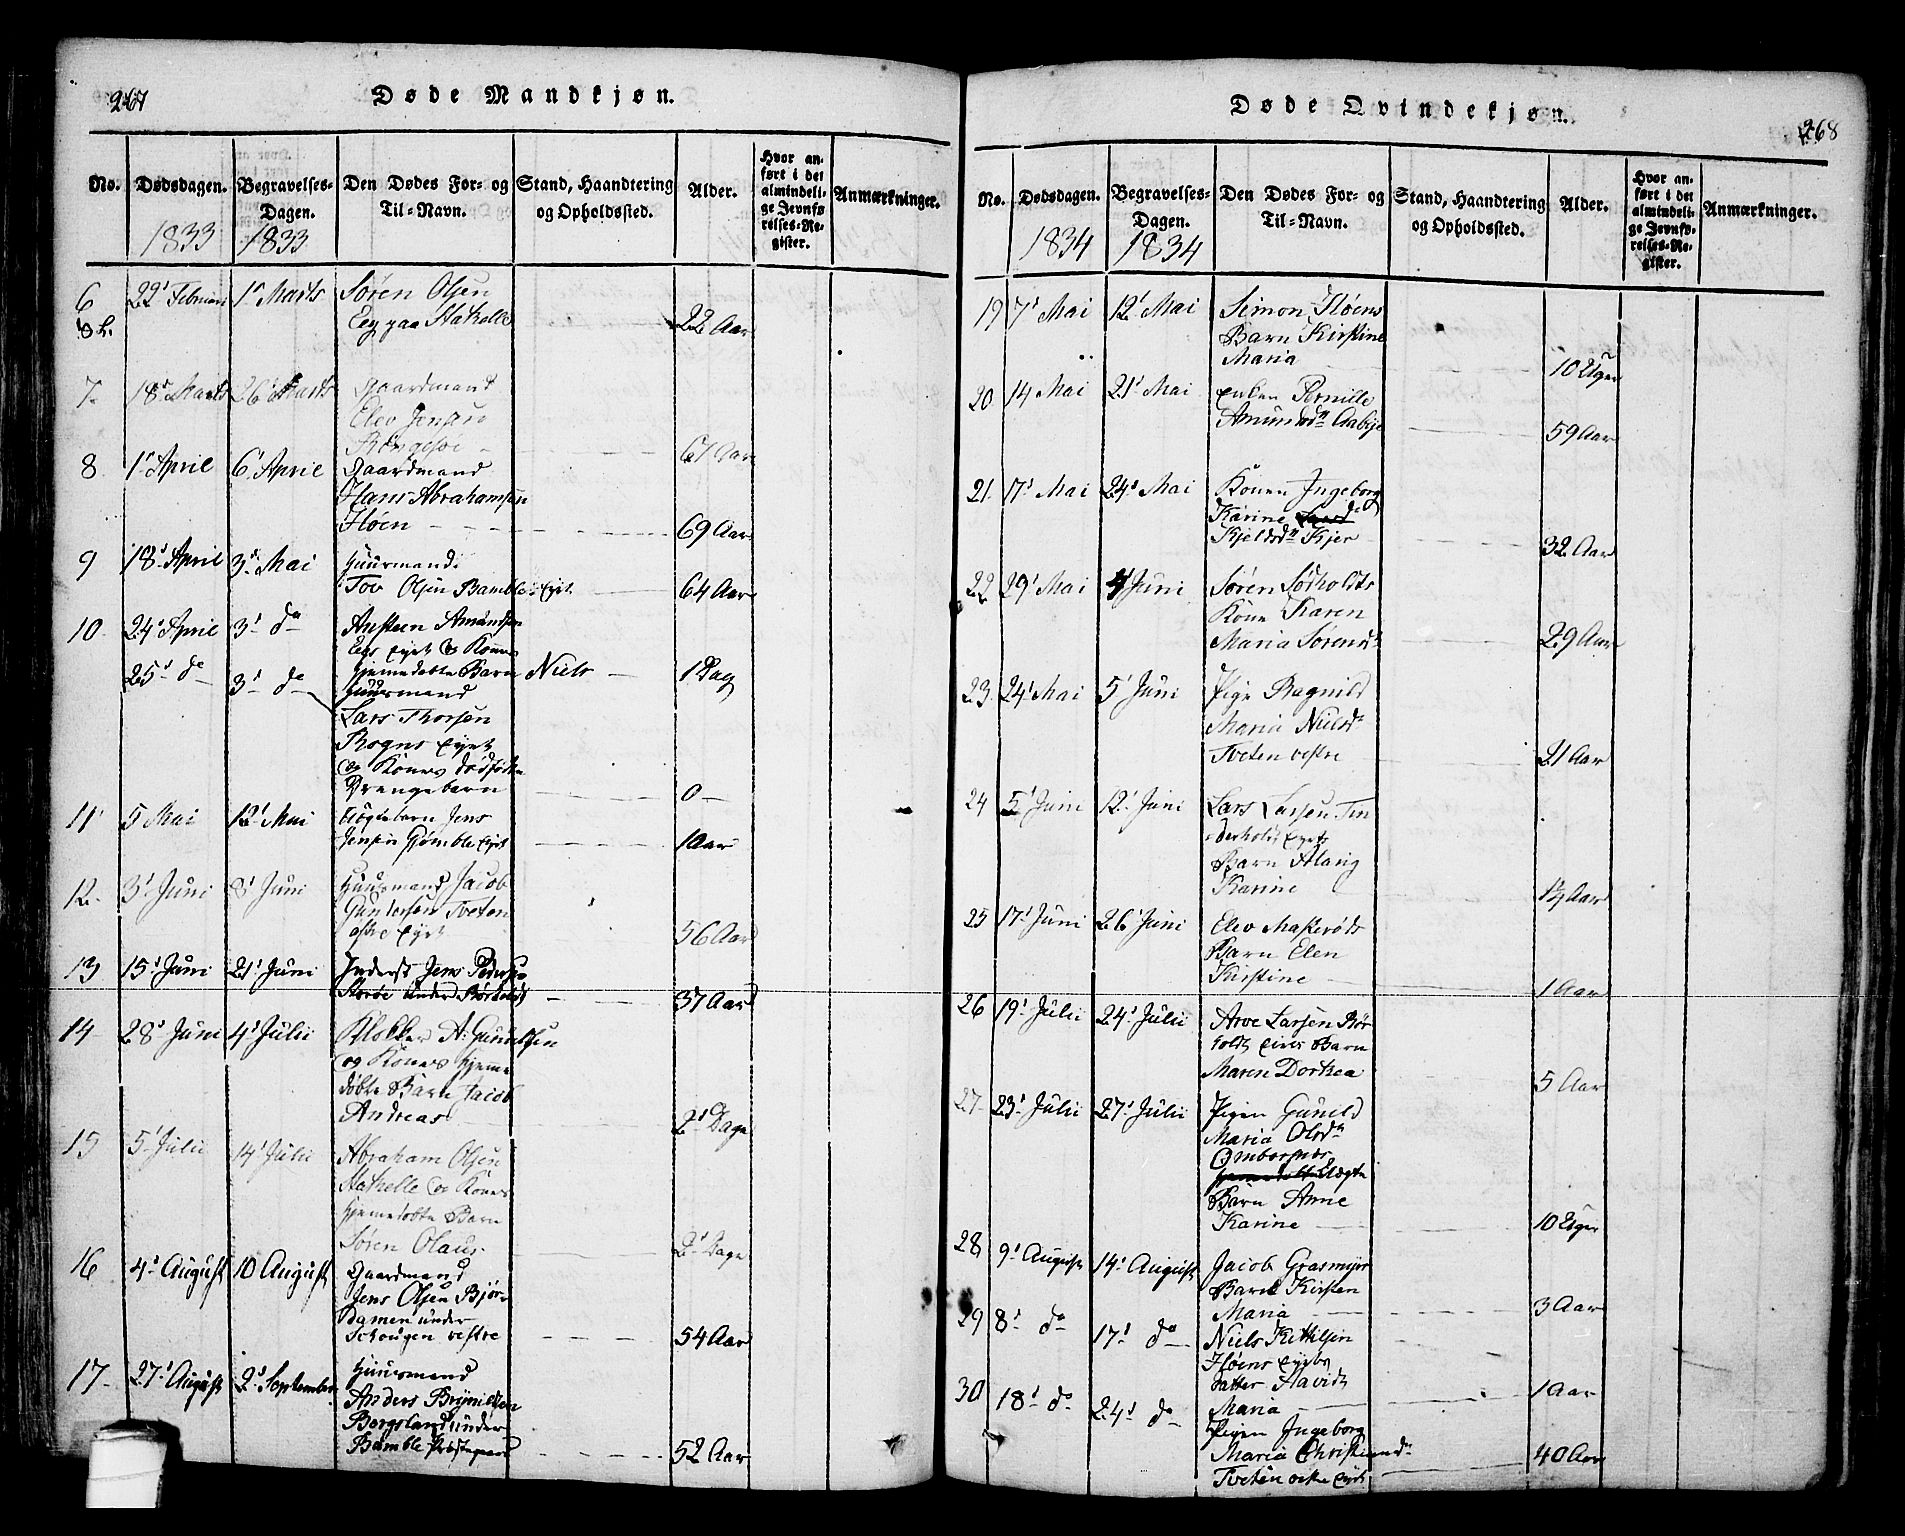 267
Døde Mandkjøn.
No. Dødsdagen. Begravelses-Dagen. Den Dødes For- og Til-Navn. Stand, Haandtering og Opholdssted. Alder. Hvor anført i det almindelige Jevnførelses-Register. Anmærkninger.
1833 1833
6 22' Februari 1' Marts Søren Olsen
Eeg paa Stakelle 22 Aar
7 18' Marts 26' Marts Gaardmand
Elev Jensen
67 Aar
8 1' April 6' April Gaardmand
Hans Abrahamsen
Fløen 69 Aar
9 18' April 3' Mai Huusmand
Tov Olsen Bamble Eyet 64 Aar
10 24' April 3' do Ansteen Amundsen
Eegs Eyet & Kones
hjemedøbte Barn Niels 1 Dag
25' do 3' do Huusmand
Lars Thorsen
Rogns Eyet
& Kones dødfødte
Drengebarn 0
11 5 Mai 12' Mai Uægtebarn Jens
Jensen Grømble Eyet 1 Aar
12 3' Juni 8' Juni Huusmand Jacob
Gundersen Tveten
østre Eyet 56 Aar
13 15' Juni 21' Juni Inderst Jens Peders.
under 37 Aar
14 28' Juni 4' Julii Klokker A: Gundersen
og Kones hjemme
døbte Barn Jacob
Andreas 2' Dage
15 5' Julii 14' Julii Abraham Olsen
Stakelle & Kones
hjemedøbte Barn
Søren Olaus 2' Dage
16 4' August 10 August Gaardmand
Jens Olsen Bjør
Damen under
Schougen vestre 54 Aar
17 27' August 2' September Huusmand
Anders Brynildsen
Borgsland under
Bamble Præstegaard 52 Aar
268
Døde Qvindekjøn.
No. Dødsdagen. Begravelses-Dagen. Den Dødes For- og Til-Navn. Stand, Haandtering og Opholdssted. Alder. Hvor anført i det almindelige Jevnførelses-Register. Anmærkninger.
1834 1834
19 7' Mai 12' Mai Simon Fløens
Barn Kirstine
Maria 10 Uger
20 14 Mai 21' Mai Enken Pernille
Amundsdn Aabye 59 Aar
21 17' Mai 24' Mai Konen Ingeborg
Karine
Kjeldsdn Kjer 32 Aar
22 29' Mai 4' Juni Søren Sødholdts
Kone Karen
Maria Sørensdn 29 Aar
23 24' Mai 5' Juni Pige Ragnild
Maria Nielsdn
Tveten vestre 21 Aar
24 5' Juni 12' Juni Lars Larsen Tin
derholt Eyets
Barn
Karine 1½ Aar
25 17' Juni 26' Juni Elev Masterøds
Barn Elen
Kirstine 1 Aar
26 19' Julii 24' Julii Arve Larsen Rør
holdt Eiets Barn
Maren Dorthea 5 Aar
27 23' Julii 27' Julii Pigen Gunild
Maria Olsdn
Omborsnæs
Uægte
Barn Anne
Karine 10 Uger
28 9' August 14' August Jacob Grasmyr
Barn Kirsten
Maria 3 Aar
29 8' do 17' do Niels Kittilsen
Fløens Eyets
Datter Havidt
Maria 1 Aar
30 18' do 24' do Pigen Ingeborg
Maria Christiansdn
Tveten østre Eyet 40 Aar